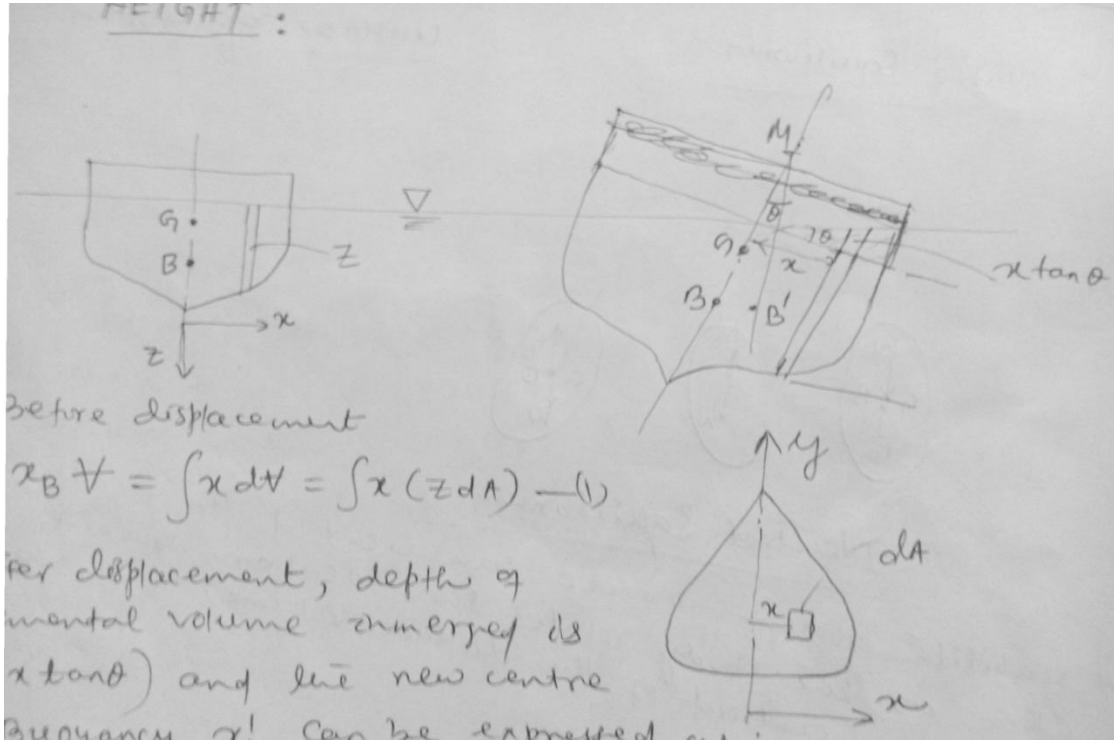 HEIGHT :
M
G
B
Z
x
Z
θ
θ
G
x
x tan θ
B
B'
Before displacement
x_B V = ∫ x dV = ∫ x (z dA) —(1)
y
dA
ter displacement, depth of
mental volume immersed is
x
x tan θ) and the new centre
x
Buoyancy x' can be expressed as :